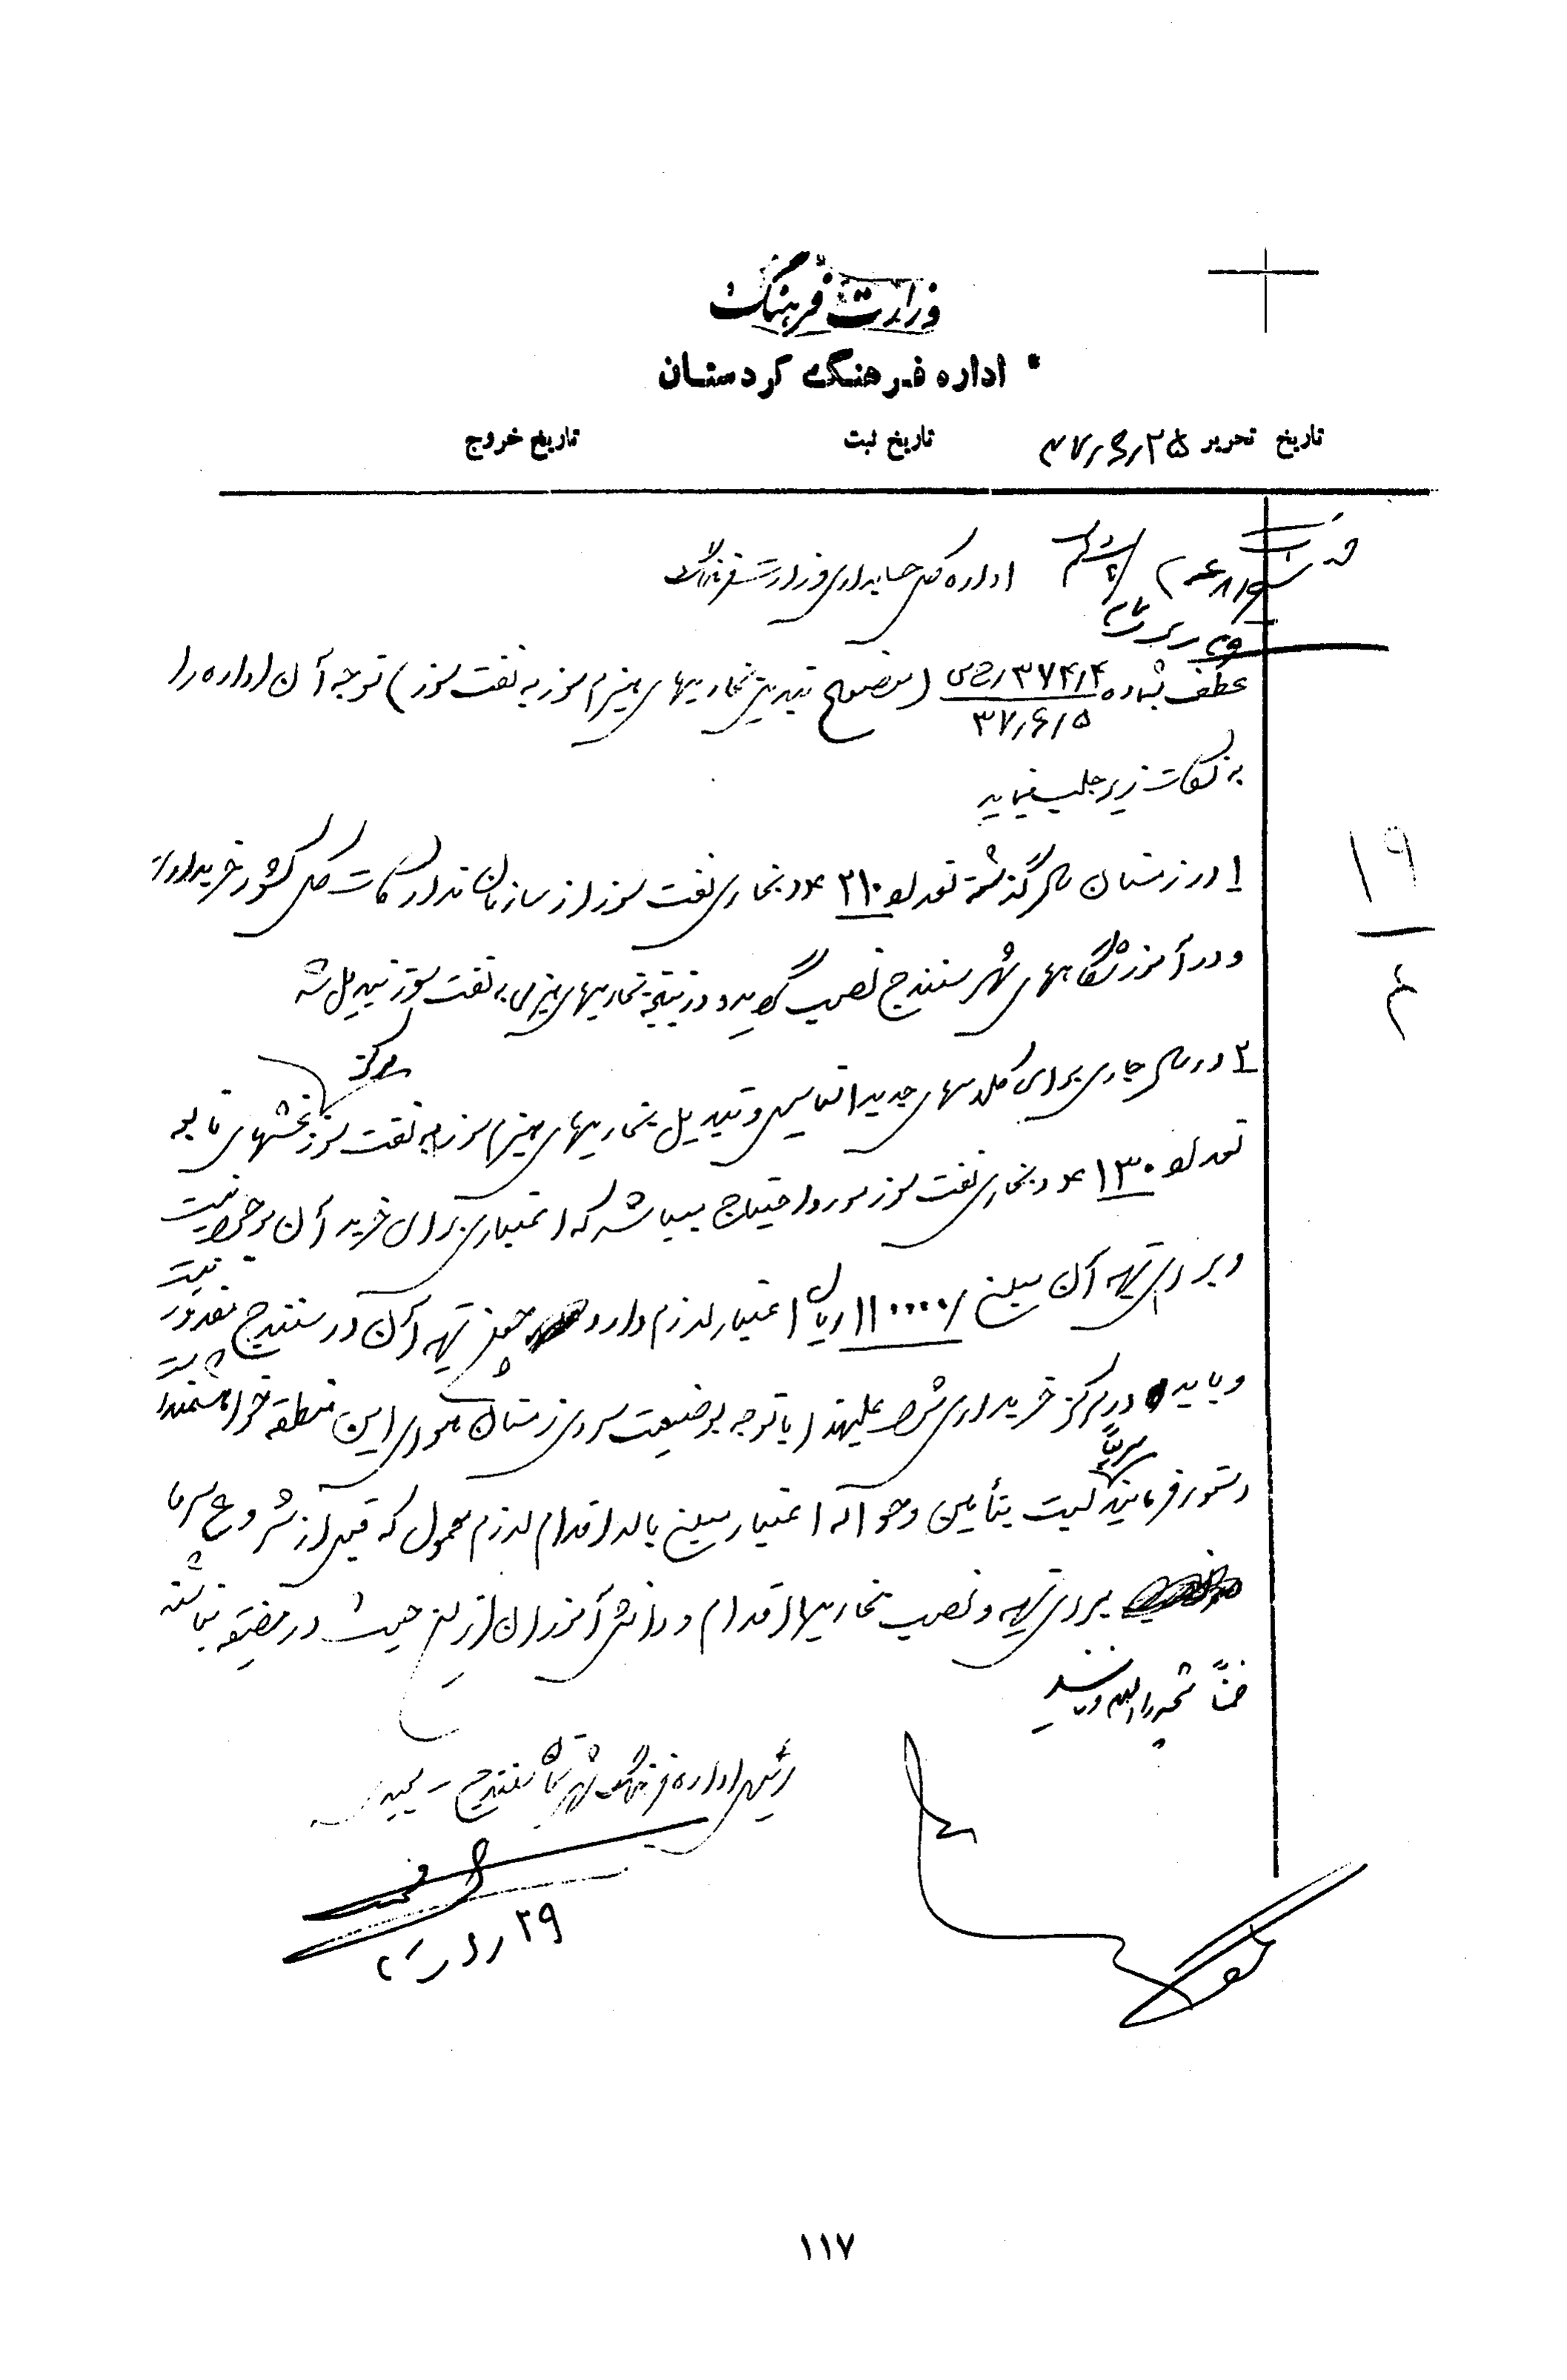 وزارت فرهنگ
اداره فرهنگ کردستان
تاریخ تحریر ۳۷٫۶٫۲۵ تاریخ ثبت تاریخ خروج
اداره کل حسابداری وزارت فرهنگ
عطف بشماره ۳۷۴۲٫۴ / ۳۷٫۶٫۵ (موضوع تبدیل بخاریهای هیزم سوز به نفت سوز) توجه آن اداره را
به نکات زیر جلب مینماید
۱ـ در زمستان سال گذشته تعداد ۲۱۰ عدد بخاری نفت سوز از سازمان تدارکات کل کشور خریداری
و در آموزشگاههای شهر سنندج نصب گردید و در نتیجه بخاریهای هیزمی به نفت سوز تبدیل شد
۲ـ در سال جاری برای کلاسهای جدید التأسیس مرکز و تبدیل بخاریهای هیزم سوز به نفت سوز بخشهای تابعه
تعداد ۱۳۰ عدد بخاری نفت سوز مورد احتیاج میباشد که اعتباری برای خرید آن موجود نیست
و برای تهیه آن مبلغ ۱۱۰۰۰۰۰ ریال اعتبار لازم دارد چون تهیه آن در سنندج مقدور نیست
و باید در مرکز خریداری شود علیهذا با توجه بوضعیت سردی زمستان و هوای این منطقه خواهشمند است
دستور فرمایند سریعاً نسبت بتأمین و حواله اعتبار مبلغ بالا اقدام لازم معمول که قبل از شروع سرما
برای تهیه و نصب بخاریها اقدام و دانش آموزان از این حیث در مضیقه نباشند
ضمناً
رئیس اداره فرهنگ شهرستان سنندج ـ
۱۹
۴
۱۱۷